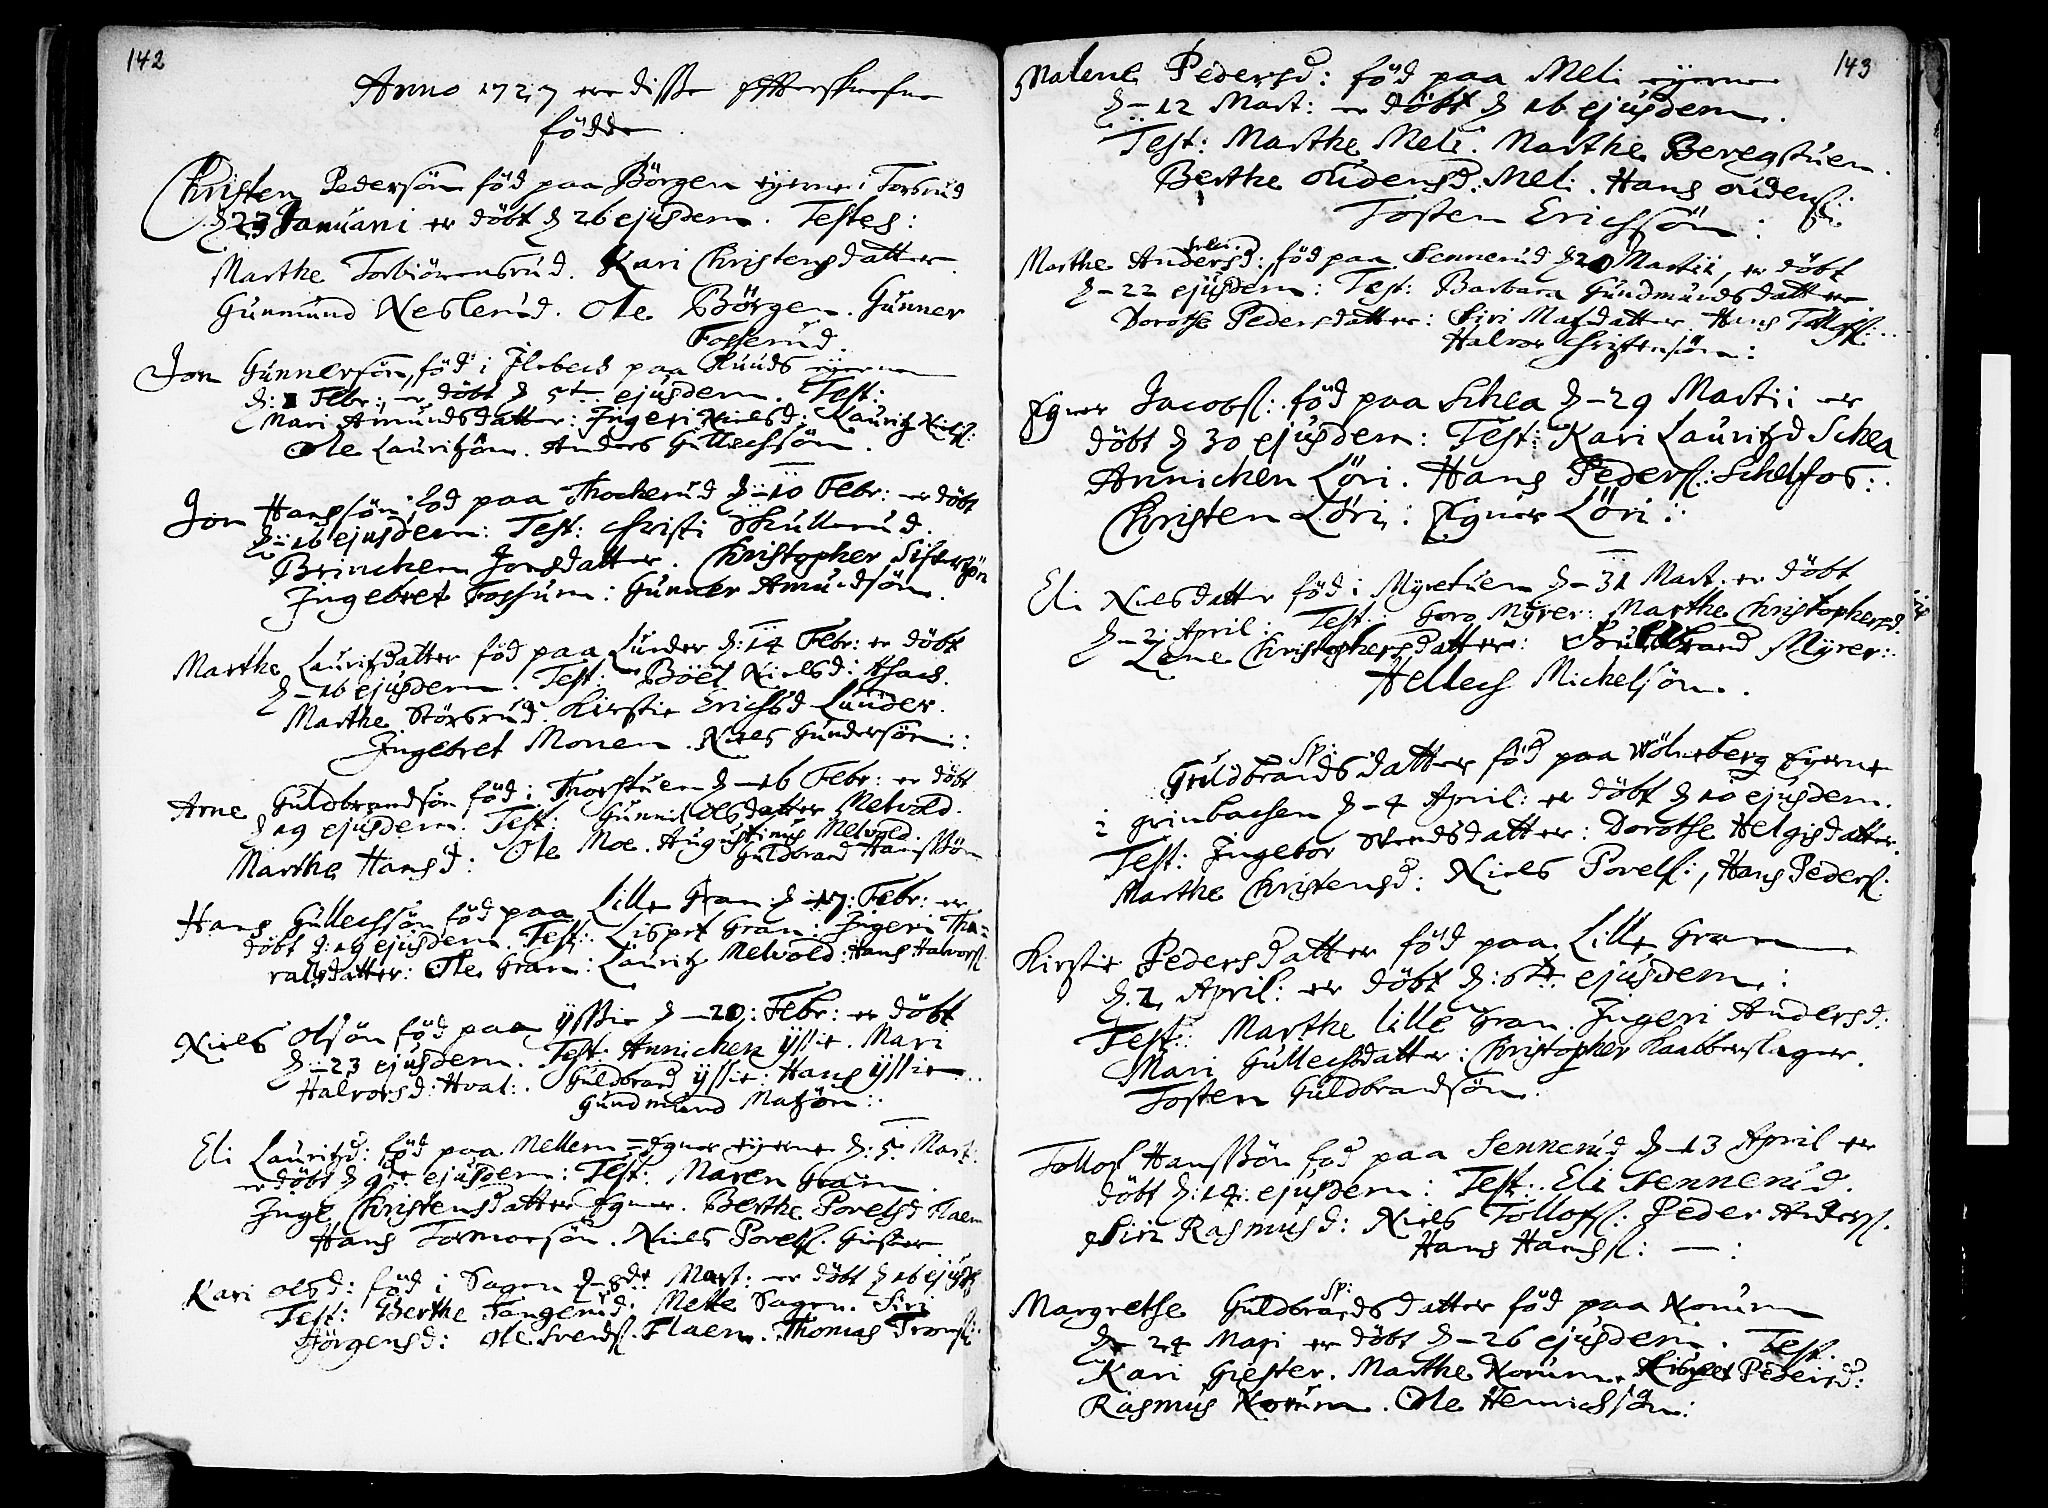 142
Anno 1727 ere disse efterskrefne
födde
Christen Pedersön föd paa Börgen eyerne i Torbrud
d 23 Januarii er döbt d 26 ejusdem. Testes:
Marthe Torbiörensrud. Kari Christensdatter.
Gunmund Neslerud. Ole Börgen. Gunner
Fosserud.
Jon Gunnersön, föd i Flobech paa Ruuds eyerne
d: 1 Febr: er döbt d 5te ejusdem. Test:
Mari Amundsdatter: Ingeri Nielsd: Lauritz Nielss:
Ole Lauritzön. Anders Gullechssön.
Jon Hanssön, föd paa Thockerud d 10 Febr: er döbt
d 16 ejusdem: Test: Christi Skullerud.
Brinchen Jonsdatter. Christopher Sifversön
Ingebret Fossum: Gunner Amundsön.
Marthe Lauritzdatter föd paa Lunder d: 14 Febr: er döbt
d 16 ejusdem. Test: Böel Nielsd: Asach.
Marthe Störsrud. Kirstie Erichsd Lunder.
Ingebret Monen. Niels Gundersön:
Arne Guldbrandsön föd i Thorstuen d 16 Febr: er döbt
d 19 ejusdem. Test: Gunnil Olsdatter Melvold.
Marthe Hansd: Ole Moe. Augustinus Melvold.
Guldbrand Hanssön
Hans Gullechssön föd paa Lille Gran d 17: Febr: er
döbt d: 19 ejusdem. Test: Lisbet Gran: Ingeri Tha=
ralsdatter: Ole Gran: Lauritz Melvold: Hans Halvorss
Niels Olsön föd paa Yssie d 20: Febr: er döbt
d 23 ejusdem. Test: Annichen Yssie. Mari
Halvorsd: Hval: Guldbrand Yssie: Hans Yssie
Gundmund Matzön:
Eli Lauritzd: föd paa Mellem=Egner eyerne d: 5. Mart:
er döbt d 9de ejusdem: Test: Maren Gram.
Inge Christensdatter Egner. Berthe Povelsd Flaen
Hans Tormoesön. Niels Povels. Giester
Kari Olsd: föd i Sagen d 8de Mart: er döbt d 16 ejusd
Test: Berthe Tangerud. Mette Sagen. Siri
Jörgensd: Ole Svends. Flaen. Thomas Tronss:
143
Malene Pedersd: föd paa Meli eyerne
d 12 Mart: er döbt d 16 ejusdem.
Test: Marthe Meli. Marthe Beregstuen.
Berthe Oudensd: Meli. Hans Oudenss:
Tosten Erichssön:
Marthe Andersd: föd paa Sennerud d 20 Martii, er döbt
d 22 ejusdem: Test: Barbara Gundmundsdatter
Dorothe Pedersdatter: Siri Matzdatter. Hans Tollofss:
Halvor Christensön:
Egner Jacobss: föd paa Schea d 29 Martii er
döbt d 30 ejusdem: Test: Kari Lauritzd Schea
Annichen Löri. Hans Pederss: Schelfos:
Christen Löri: Egner Löri:
Eli Nielsdatter föd i Myrestuen d 31 Mart. er döbt
d 2: April: Test: Goro Myrer: Marthe Christophersd:
Lene Christophersdatter: Guldbrand Myrer:
Hellech Michelsön.
Sp:
Guldbrandsdatter föd paa Wölneberg Eyerne
i grinbachen d 4 April: er döbt d 10 ejusdem.
Test: Ingebor Svendsdatter: Dorothe Helgisdatter.
Marthe Christensd: Niels Povels:, Hans Peders:
Kirstie Pedersdatter föd paa Lille Gran
d. 1 April: er döbt d: 6te ejusdem:
Test: Marthe lille Gran. Ingeri Andersd:
Mari Gullechsdatter: Christopher Kaabberslager.
Tosten Guldbrandsön.
Tollof Hanssön föd paa Sennerud d 13 April er
döbt d: 14: ejusdem: Test: Eli Sennerud.
Siri Rasmusd: Niels Tollofs: Peder Anderss.
Hans Hanss: — :
Sp:
Margrethe Guldbrandsdatter föd paa Norum
d 24 Maji er döbt d 26 ejusdem. Test.
Kari Giester. Marthe Norum. Lisbet Pedersd:
Rasmus Norum. Ole Henrichsön: